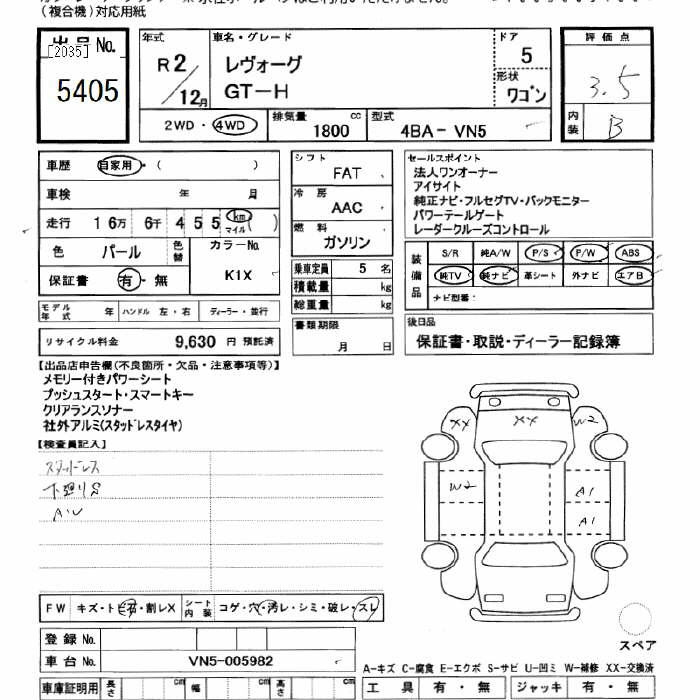 (複合機)対応用紙
出品 No.
[2035]
5405
年式
R2/12月
車名・グレード
レヴォーグ
GT-H
ドア
5
形状
ワゴン
評価点
3.5
内装
B
2WD・4WD
排気量
1800 cc
型式
4BA- VN5
車歴 自家用・( )
車検 年 月
走行 16万 6千 455 km マイル ( )
色 パール
色替
カラーNo.
K1X
保証書 有・無
モデル年式 年 ハンドル 左・右 ディーラー・並行
リサイクル料金 9,630 円 預託済
シフト
FAT
冷房
AAC
燃料
ガソリン
乗車定員 5 名
積載量 kg
総重量 kg
書類期限
月 日
セールスポイント
法人ワンオーナー
アイサイト
純正ナビ・フルセグTV・バックモニター
パワーテールゲート
レーダークルーズコントロール
装備品
S/R 純A/W P/S P/W ABS
純TV 純ナビ 革シート 外ナビ エアB
ナビ型番:
後日品
保証書・取説・ディーラー記録簿
【出品店申告欄(不良箇所・欠品・注意事項等)】
メモリー付きパワーシート
プッシュスタート・スマートキー
クリアランスソナー
社外アルミ(スタッドレスタイヤ)
【検査員記入】
スタッドレス
下廻りS
XX XX W2
W2 A1
A1
FW キズ・トビ石・割レX
シート内装 コゲ・穴・汚レ・シミ・破レ・スレ
登録 No.
車台 No. VN5-005982
スペア
A-キズ C-腐食 E-エクボ S-サビ U-凹ミ W-補修 XX-交換済
車庫証明用 長さ cm 幅 cm 高さ cm
工具 有・無 ジャッキ 有・無